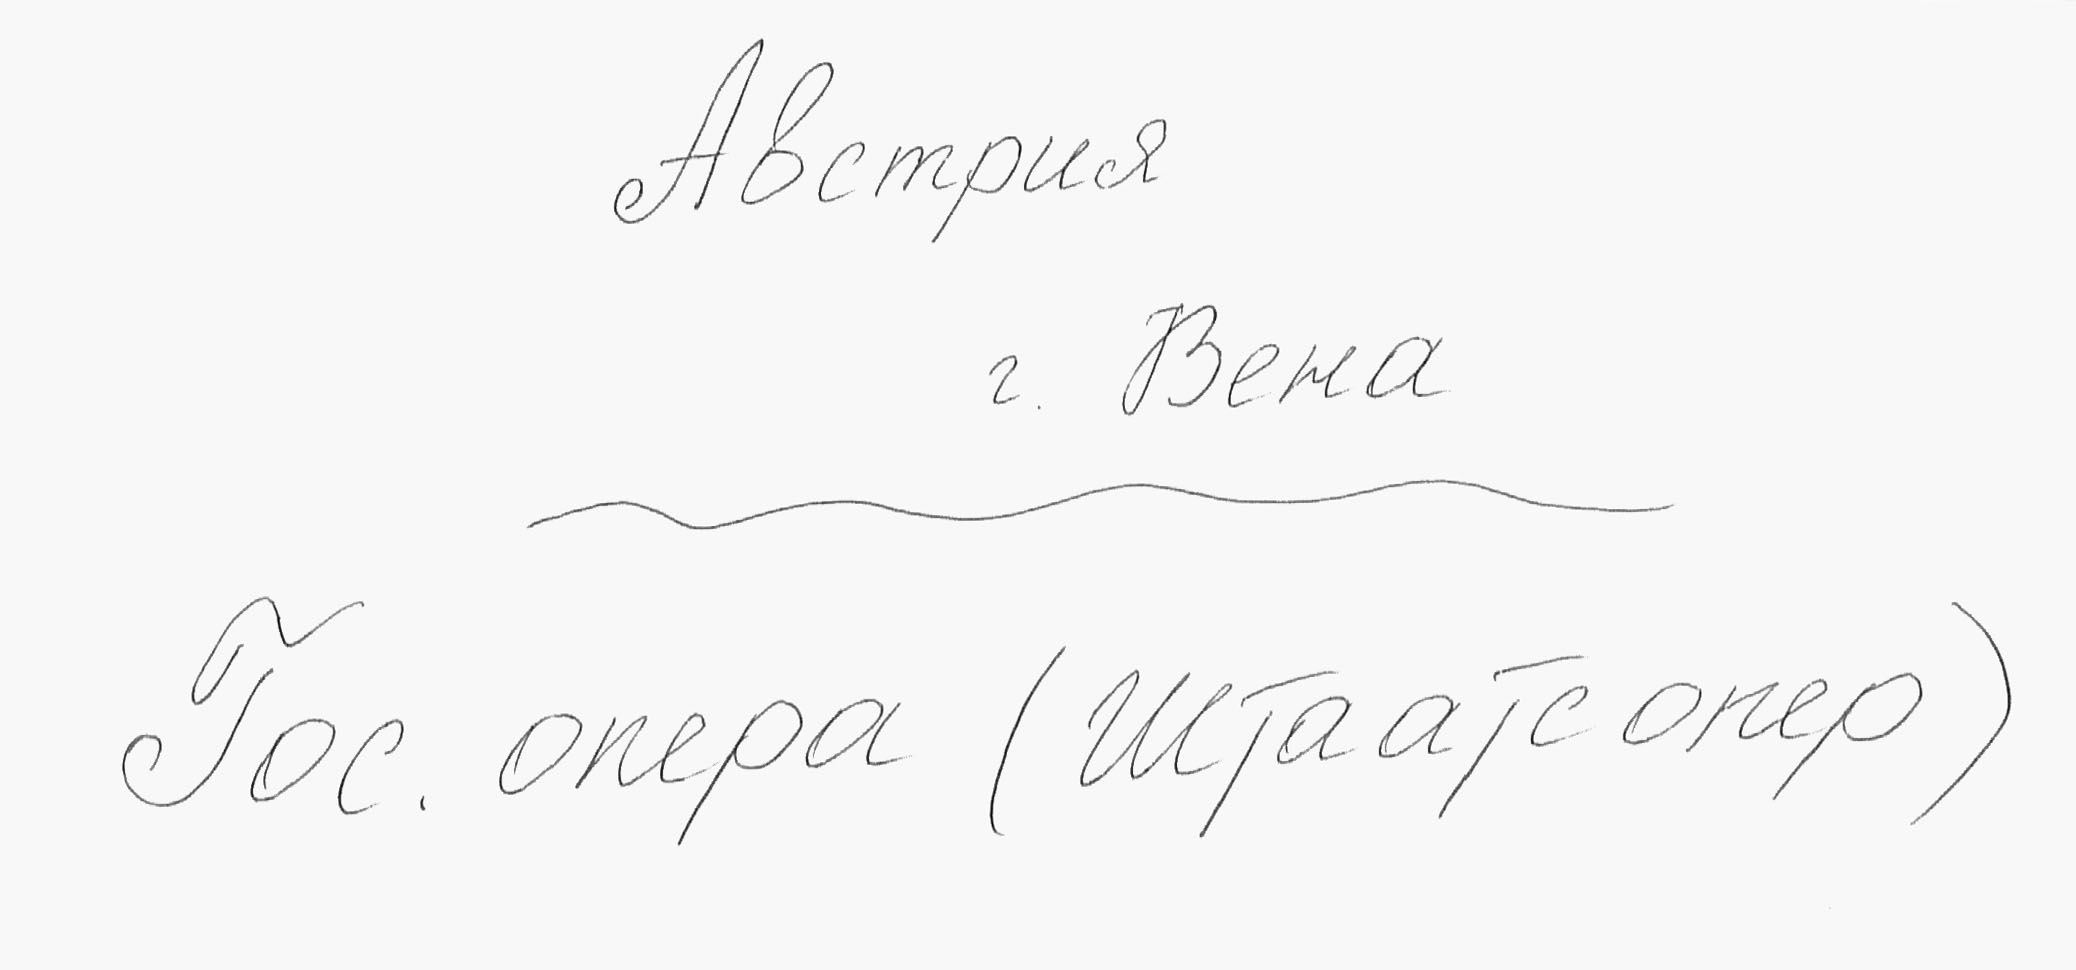 Австрия
г. Вена
Гос. опера (Штаатсопер)